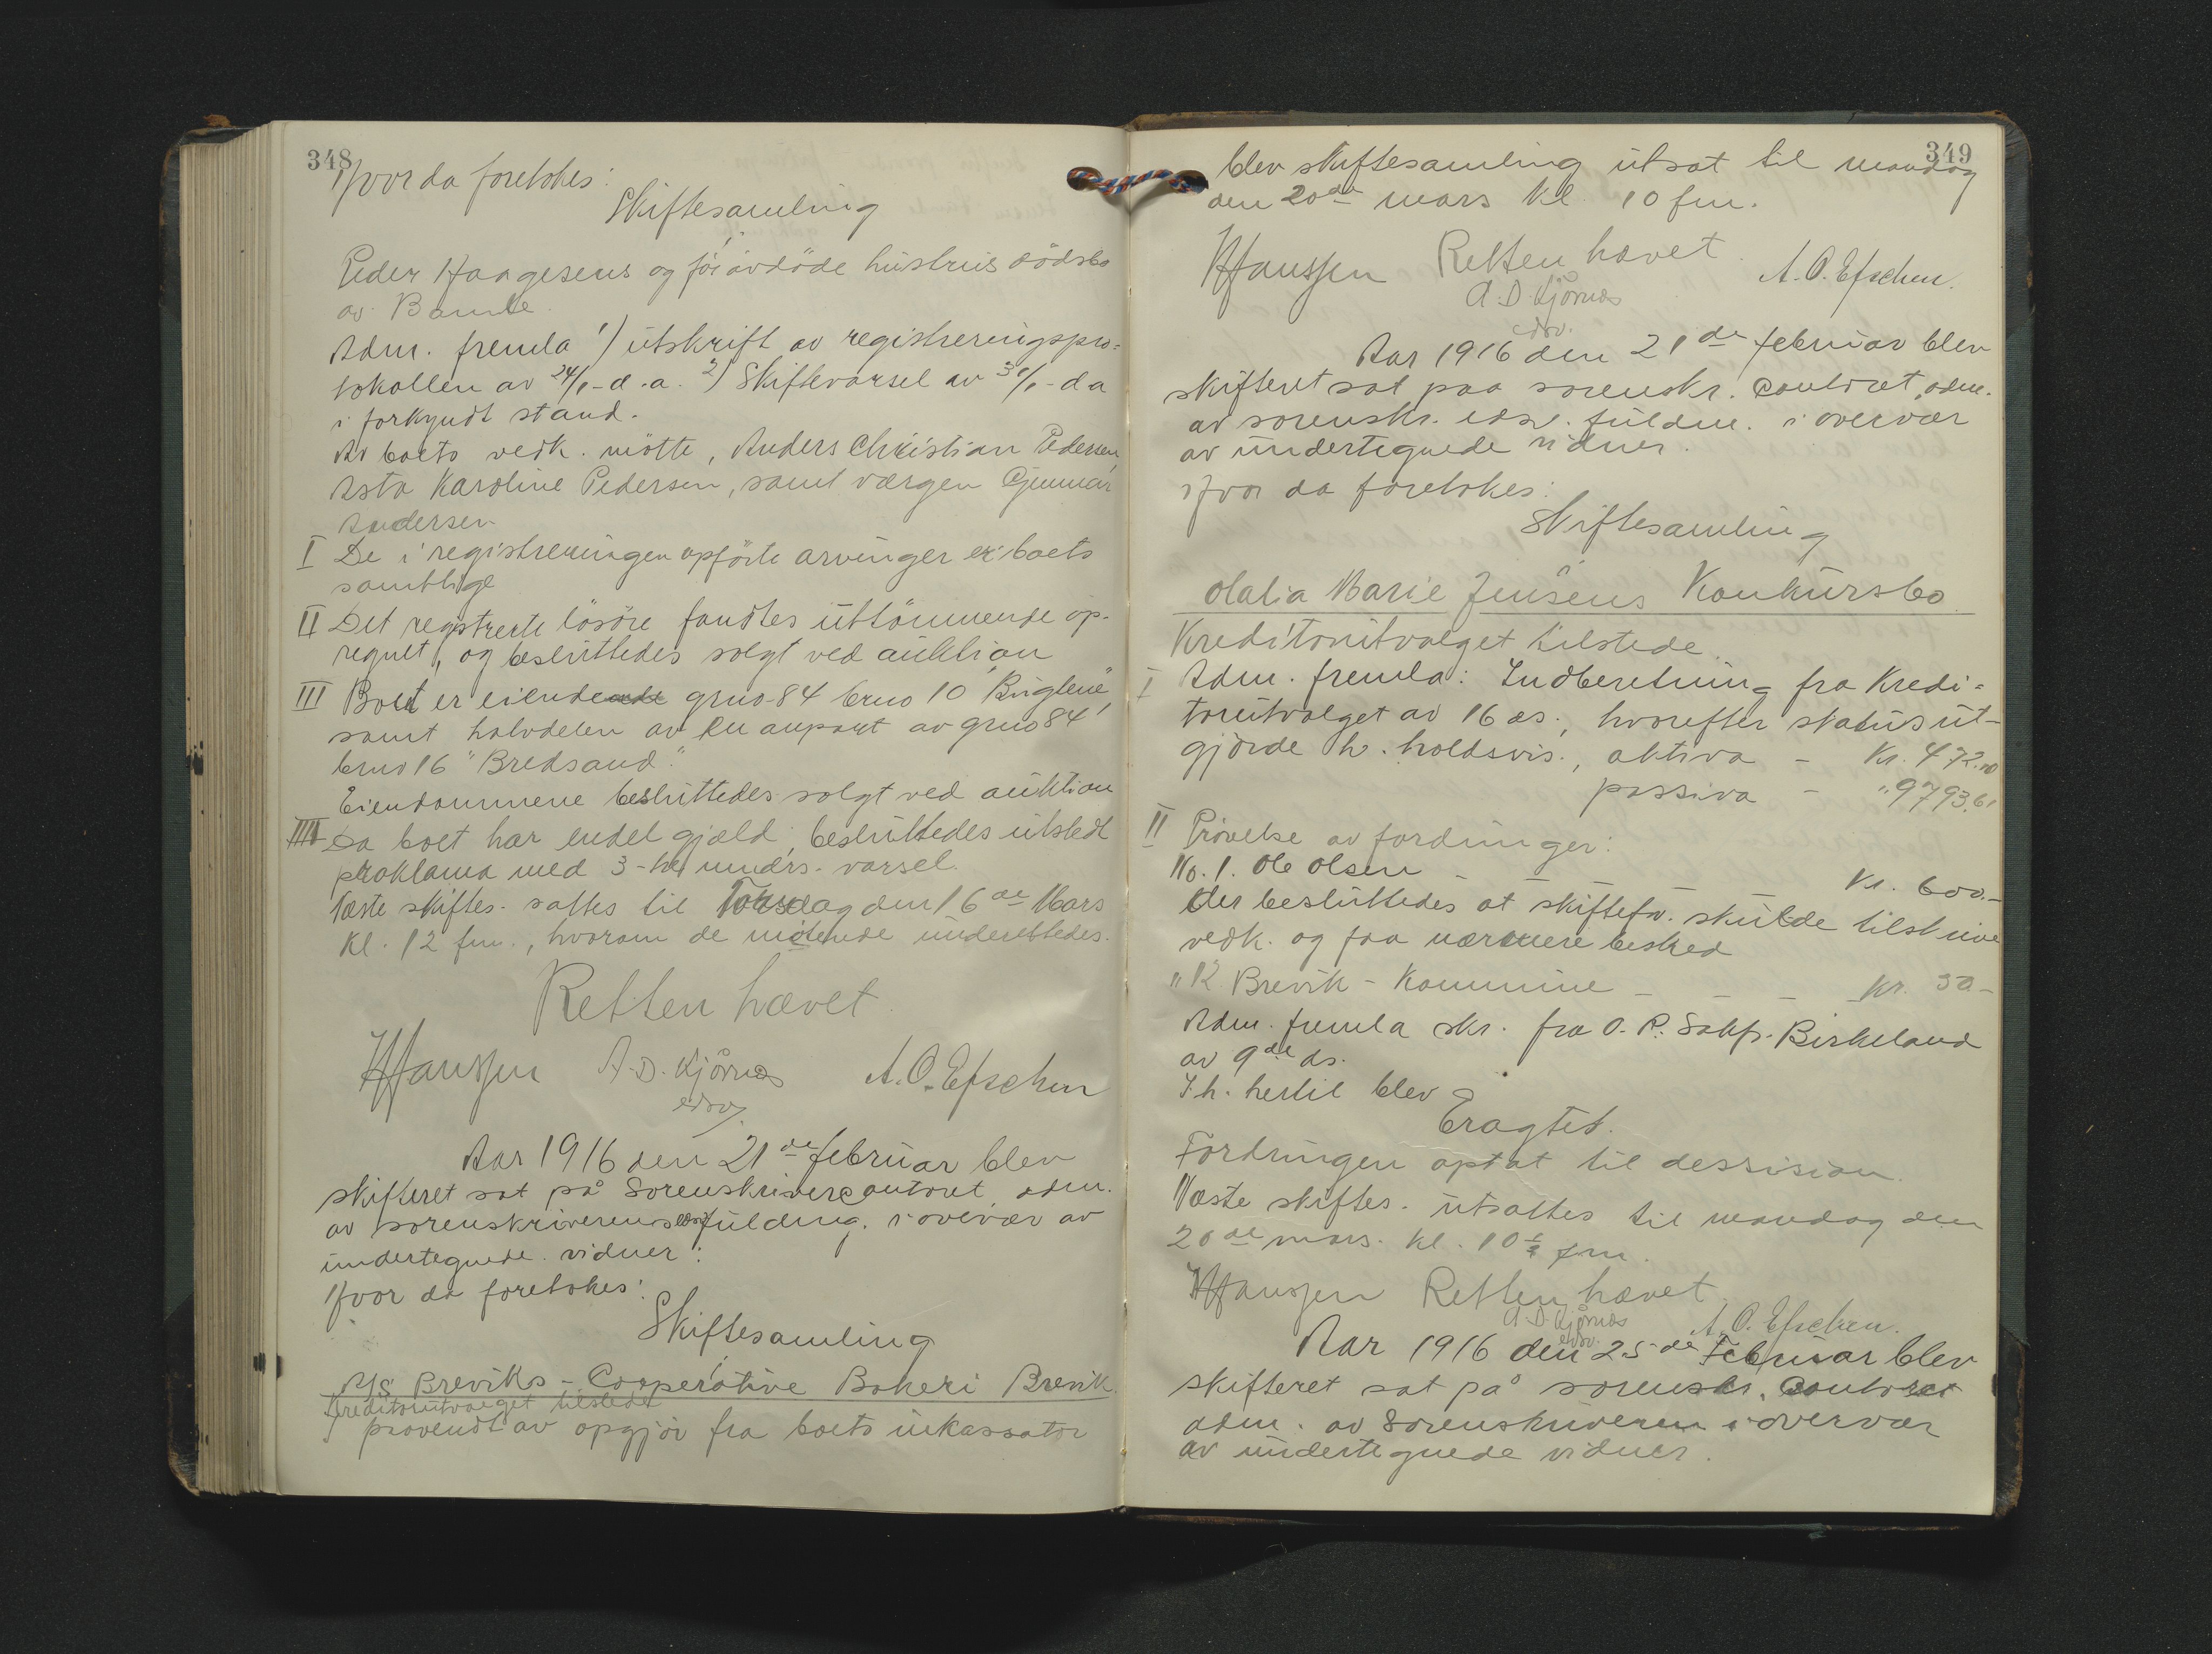 348
Hvor da foretokes:
Skiftesamling
i
Peder Haagesens og føravdøde hustrus dødsbo
av Bamle.
Adm. fremla 1) utskrift av registreringspro-
tokollen av 24/1 - d.a. 2) Skiftevarsel av 31/1 - d a
i forkyndt stand.
Av boets vedk. møtte, Anders Christian Pedersen,
Asta Karoline Pedersen, samt værgen Gunnar
Andersen
I De i registreringen opførte arvinger er boets
samtlige
II Det registrerte løsøre fandtes uttømmende op-
regnet, og besluttedes solgt ved auktion
III Boet er eiende grno 84 brno 10 "
samt halvdelen av en anpart av grno 84
brno 16 "Bredsand".
Eiendommene besluttedes solgt ved auktion
IIII Da boet har endel gjæld, besluttedes utstedt
proklama med 3 - mndrs. varsel.
Næste skiftes. sattes til Torsdag den 16de Mars
Kl. 12 fm., hvorom de møtende underettedes.
Retten hævet.
HHanssen A.D. Kjørnæs A.O. Efschen
edsv.
Aar 1916 den 21de februar blev
skifteret sat på Sorenskriverecontoret adm.
av sorenskriverens edsv fuldm. i overvær av
undertegnede vidner:
Hvor da foretokes:
Skiftesamling
i
A/S Breviks - Cooperative Bakeri Brevik.
Kreditorutvalget tilstede
I provendt av opgjør fra boets inkassator
349
blev skiftesamling utsat til mandag
den 20de mars kl. 10 fm.
HHanssen Retten hævet. A.O. Efschen.
A.D. Kjørnæs
edsv.
Aar 1916 den 21de februar blev
skifteret sat paa sorenskr. contoret, adm.
av sorenskr. edsv. fuldm. i overvær
av undertegnede vidner.
Hvor da foretokes:
Skiftesamling
i
Olalia Marie Jensens Konkursbo
Kreditorutvalget tilstede.
I Adm. fremla: Indberetning fra Kredi-
torutvalget av 16 ds., hvorefter status ut-
gjorde h. holdsvis., aktiva - Kr. 472.70
passiva - " 9793.61
II Prøvelse av fordringer:
No. 1. Ole Olsen - - - Kr. 600.-
Der besluttedes at skiftefv. skulde tilskrive
vedk. og faa nærmere besked
" 12 Brevik - Kommune - - - Kr. 50 -
Adm. fremla skr. fra O.R. Sakf. Birkeland
av 9de ds.
I h. hertil blev
Eragtet.
Fordringen optat til dessision.
Næste skiftes. utsattes til mandag den
20de mars. kl. 10½ fm.
HHanssen Retten hævet.
A.D. Kjørnæs A.O. Efschen.
edsv.
Aar 1916 den 25de Februar blev
skifteret sat på sorenskr. Contoret
adm. av Sorenskriveren i overvær
av undertegnede vidner.